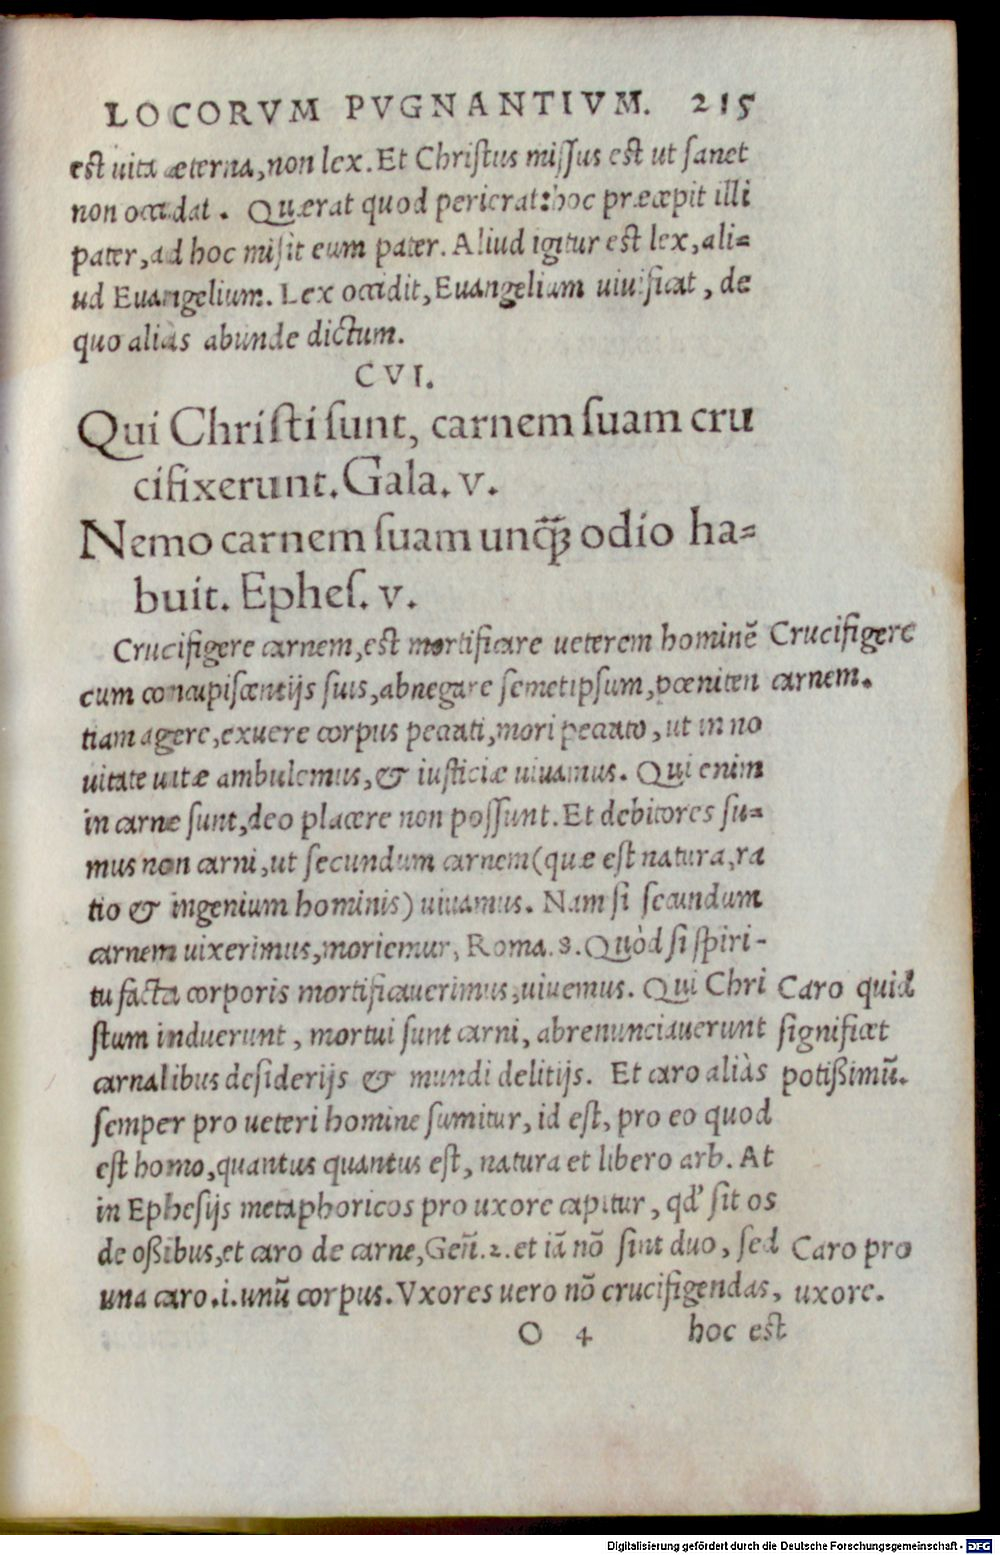 LOCORVM PVGNANTIVM. 215
est uita æterna, non lex. Et Christus missus est ut sanet
non occidat. Quærat quod perierat: hoc præcepit illi
pater, ad hoc misit eum pater. Aliud igitur est lex, ali=
ud Euangelium. Lex occidit, Euangelium uiuificat, de
quo aliàs abunde dictum.
CVI.
Qui Christi sunt, carnem suam cru
cifixerunt. Gala. v.
Nemo carnem suam unq̃ꝫ odio ha=
buit. Ephes. v.
Crucifigere carnem, est mortificare ueterem hominē
Crucifigere
cum concupiscentijs suis, abnegare semetipsum, pœniten
carnem.
tiam agere, exuere corpus peccati, mori peccato, ut in no
uitate uitæ ambulemus, & iusticiæ uiuamus. Qui enim
in carne sunt, deo placere non possunt. Et debitores su=
mus non carni, ut secundum carnem (quæ est natura, ra
tio & ingenium hominis) uiuamus. Nam si secundum
carnem uixerimus, moriemur, Roma. 8. Quòd si spiri-
tu facta corporis mortificauerimus, uiuemus. Qui Chri
Caro quid
stum induerunt, mortui sunt carni, abrenunciauerunt
significet
carnalibus desiderijs & mundi delitijs. Et caro aliàs
potißimū.
semper pro ueteri homine sumitur, id est, pro eo quod
est homo, quantus quantus est, natura et libero arb. At
in Ephesijs metaphoricos pro uxore capitur, qd' sit os
de oßibus, et caro de carne, Geñ. 2. et iā nō sint duo, sed
Caro pro
una caro. i. unū corpus. Vxores uero nō crucifigendas,
uxore.
O 4 hoc est
Digitalisierung gefördert durch die Deutsche Forschungsgemeinschaft - DFG